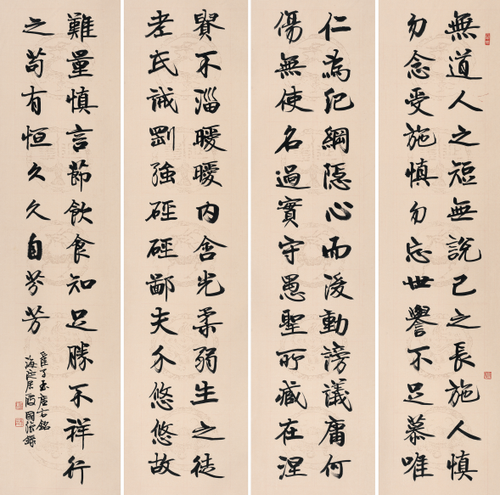 無道人之短無說己之長施人慎
勿念受施慎勿忘世譽不足慕唯
仁為紀綱隱心而後動謗議庸何
傷無使名過實守愚聖所藏在涅
貴不淄曖曖内含光柔弱生之徒
老氏誡剛強硜硜鄙夫介悠悠故
難量慎言節飲食知足勝不祥行
之苟有恒久久自芬芳
崔子玉座右銘